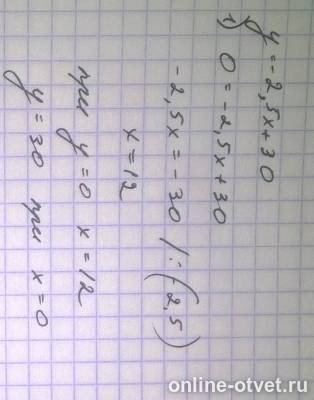 y=-2,5x+30
1) 0=-2,5x+30
-2,5x=-30 /:(-2,5)
x=12
при y=0 x=12
y=30 при x=0
online-otvet.ru